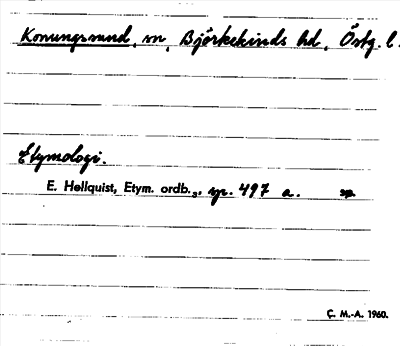 Konungssund, sn, Björkekinds hd, Östg. l.
Etymologi.
E. Hellquist, Etym. ordb., sp. 497 a.
C. M.-A. 1960.